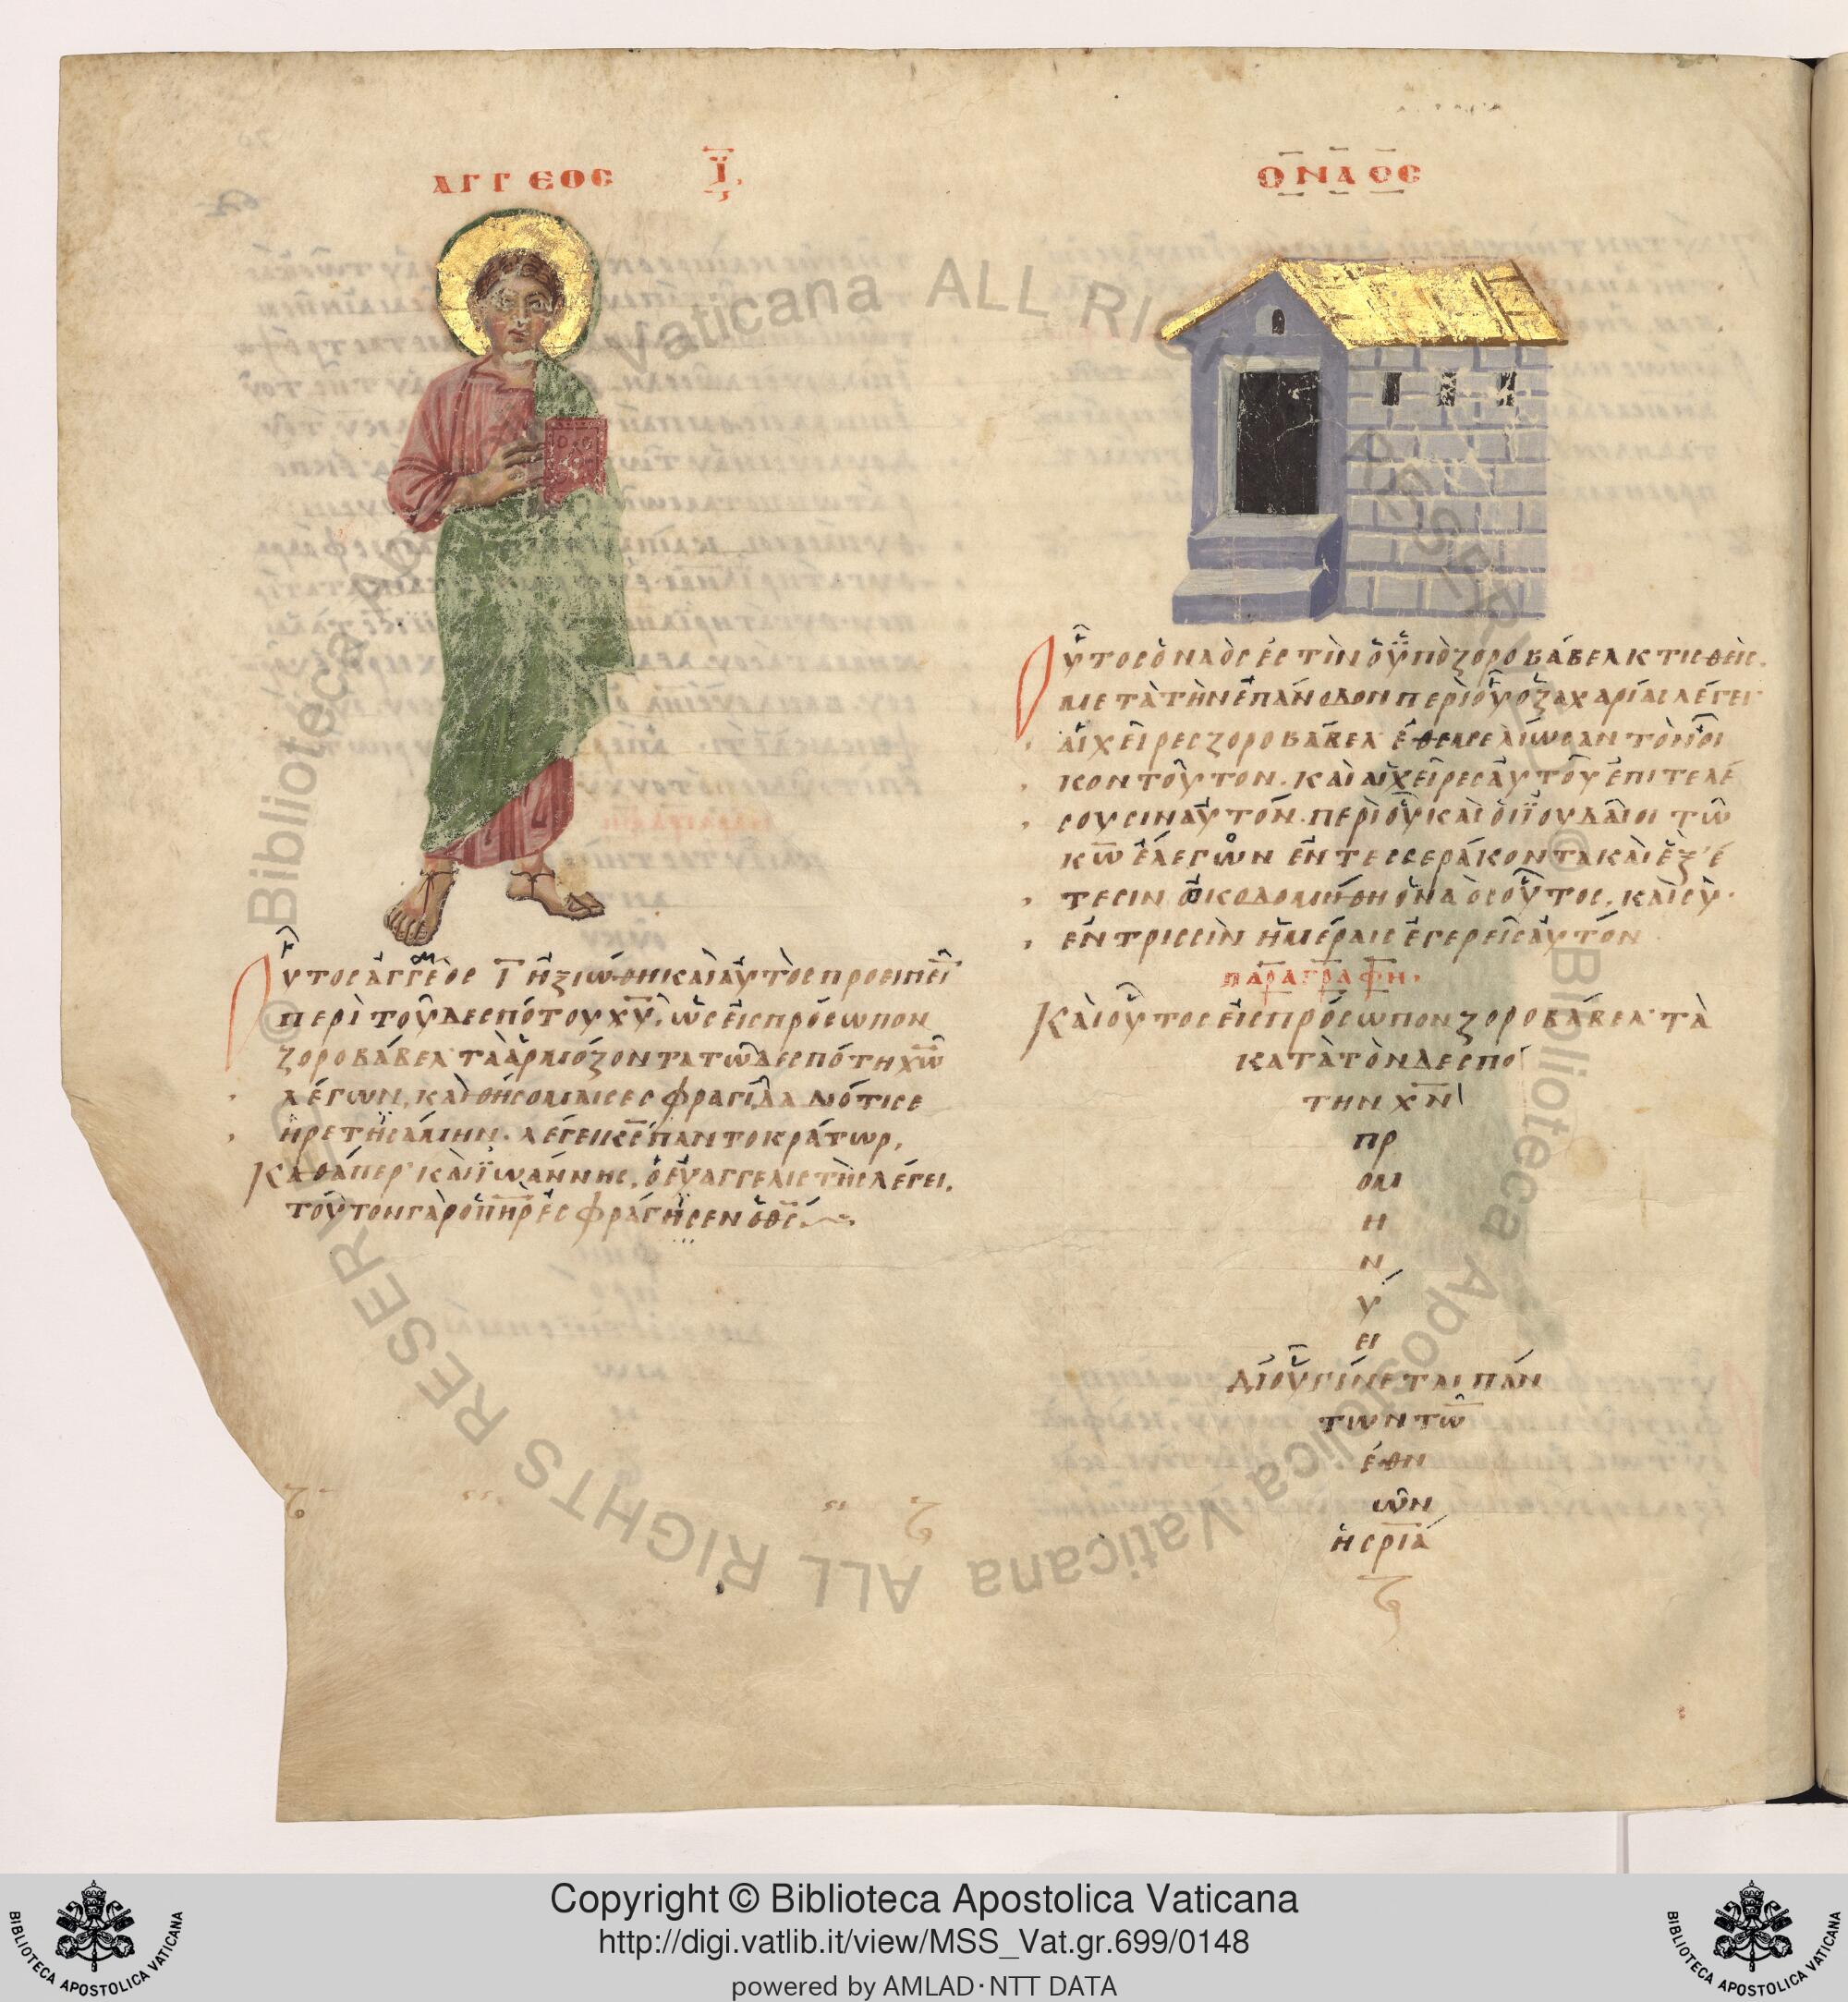 ΑΓΓΕΟΣ Ϊ.
ΟΝΑΟΣ
Οὗτος ἀγγεὸς ῑ ἠξιώθη καὶ αὐτὸς προειπεῖ
περὶ τοῦ δεσπότου χ̅υ̅, ὡς εἰς πρόσωπον
ζοροβάβελ τὰ ἁρμόζοντα τῶ δεσπότη χ̅ω̅
λέγων, καὶ θήσομαί σε σφραγίδα διότι σε
ἡρέτησάμην. λέγει κ̅ς̅ παντοκράτωρ,
Καθάπερ καὶ ϊωάννης, ὁ εὐαγγελιστὴς λέγει,
τοῦτον γὰρ ὁ π̅η̅ρ̅ ἐσφράγησεν ὁ θ̅ς̅
Οὗτος ὁ ναός ἐστιν ὁ ὑπὸ ζοροβάβελ κτισθεὶς.
μετὰ τὴν ἐπάνοδον περὶ οὗ ὁ ζαχαρίας λέγει
αἱ χεῖρες ζοροβάβελ ἐθεμελίωσαν τὸν οἶ
κον τοῦτον. καὶ αἱ χεῖρες αὐτοῦ ἐπιτελέ
σουσιν αὐτόν. περὶ οὗ καὶ οἱ ϊουδαῖοι τῶ
κ̅ω̅ ἔλεγον ἐν τεσσεράκοντα καὶ ἓξ ἔ
τεσιν οἰκοδομήθη ὁ ναὸς οὗτος, καὶ σὺ
ἐν τρισσὶν ἡμέραις ἐγερεῖς αὐτόν
ΠΑΡΑΓΡΑΦΗ.
Καὶ οὗτος εἰς πρόσωπον ζοροβάβελ τὰ
κατὰ τὸν δεσπό
την χ̅ν̅
πρ
ομ
η
ν
ύ
ει
δι οὗ γίνεται πάν
των τῶ
ἐθν
ῶν
ἡ σ̅ρ̅ί̅α̅
Copyright © Biblioteca Apostolica Vaticana
http://digi.vatlib.it/view/MSS_Vat.gr.699/0148
powered by AMLAD·NTT DATA
BIBLIOTECA APOSTOLICA VATICANA
BIBLIOTECA APOSTOLICA VATICANA
© Biblioteca Apostolica Vaticana ALL RIGHTS RESERVED © Biblioteca Apostolica Vaticana ALL RIGHTS RESERVED